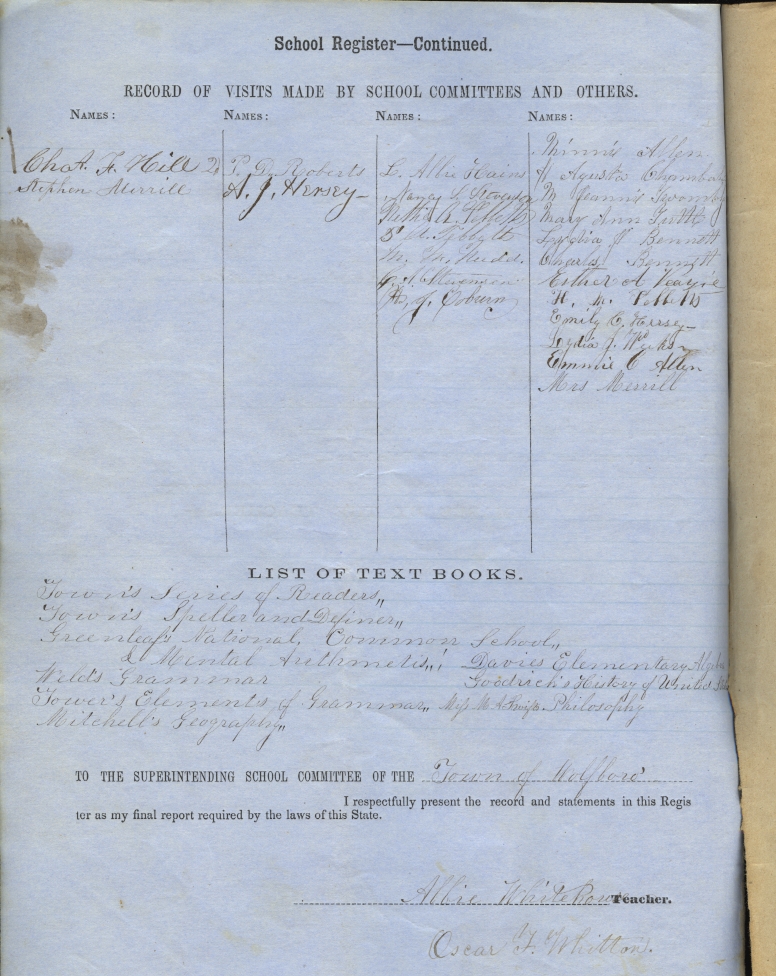 School Register—Continued.
RECORD OF VISITS MADE BY SCHOOL COMMITTEES AND OTHERS.
NAMES:
Chas. F. Hill
Stephen Merrill
NAMES:
P. D. Roberts
A. J. Hersey
NAMES:
L. Abbie Hains
Nancy L. Stevenson
S.
M. M.
Stevenson
J. Coburn
NAMES:
Minnie Allen
A Agusta
M Fannie
Mary Ann
Lydia Bennett
Charls Bennett
Esther A
H. M.
Emily C. Hersey
Lydia J.
Emmie C Allen
Mrs Merrill
LIST OF TEXT BOOKS.
Town's Series of Readers,,
Town's Speller and Definer,,
Greenleaf's National, Common School,,
& Mental Arithmetis,,
Weld's Grammar
Tower's Elements of Grammar,,
Mitchell's Geography,,
Davies Elementary
Goodrich's History of United
Philosophy
TO THE SUPERINTENDING SCHOOL COMMITTEE OF THE Town of Wolfboro'
I respectfully present the record and statements in this Regis
ter as my final report required by the laws of this State.
Abbie Teacher.
Oscar F. Whitton.